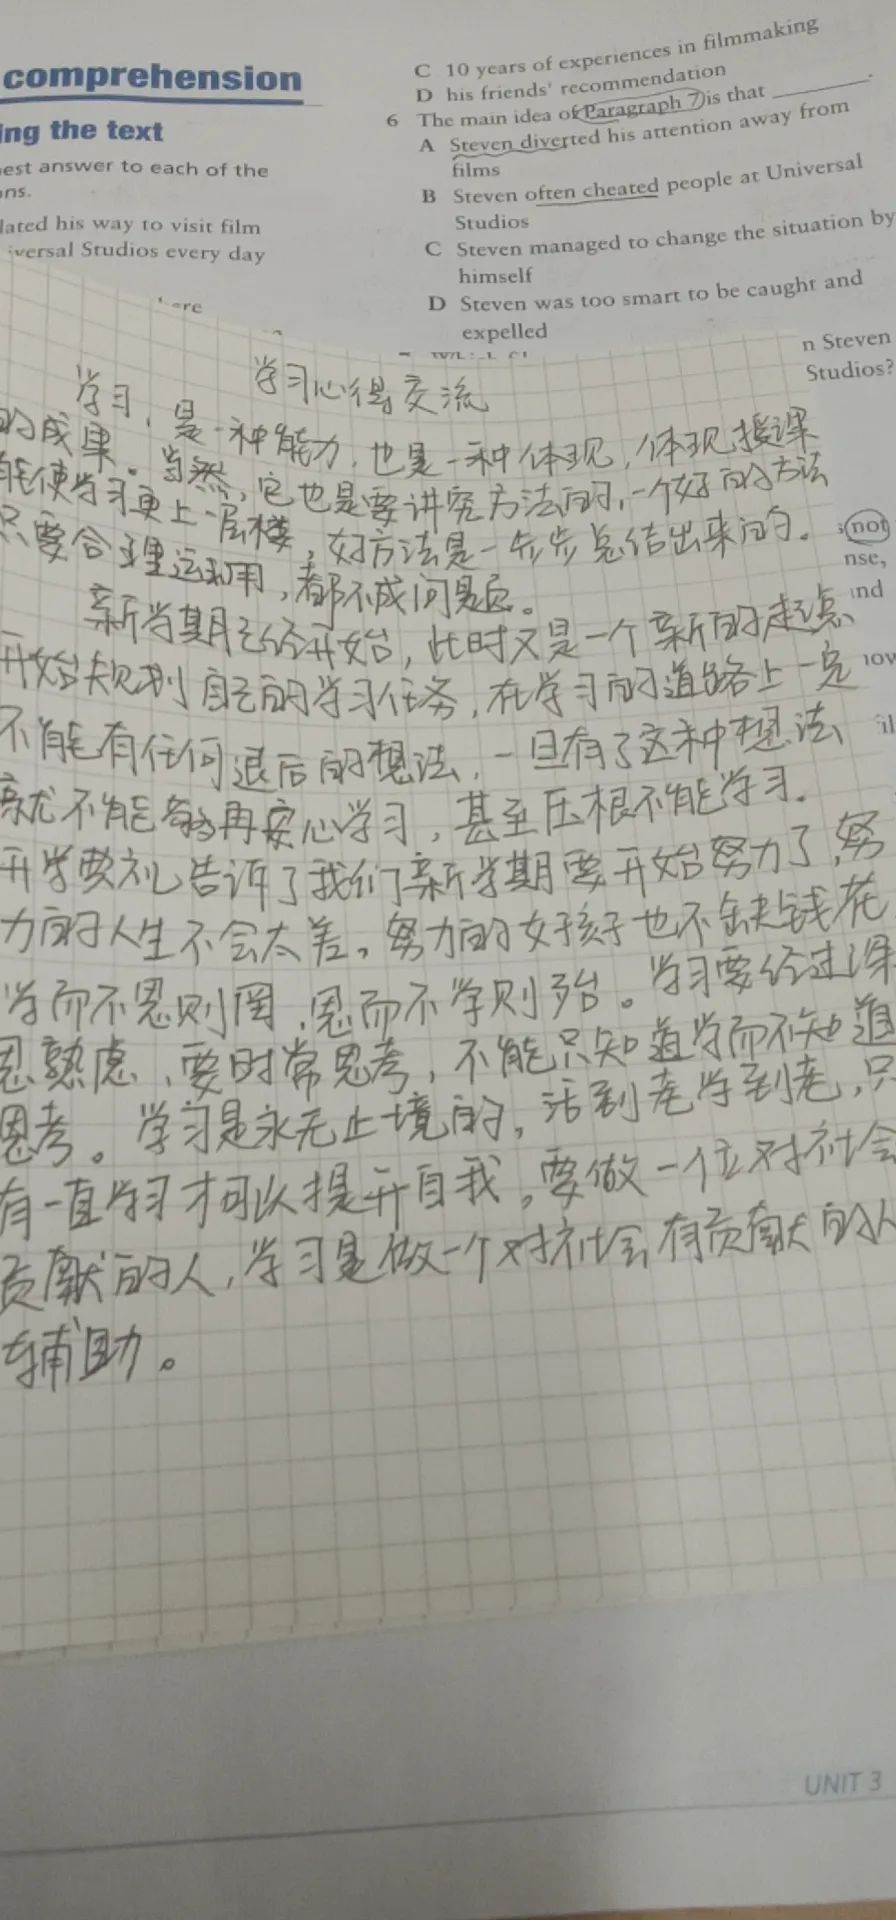 comprehension
ing the text
est answer to each of the
ns.
lated his way to visit film
iversal Studios every day
ere
C 10 years of experiences in filmmaking
D his friends' recommendation
6 The main idea of Paragraph 7 is that ________.
A Steven diverted his attention away from
films
B Steven often cheated people at Universal
Studios
C Steven managed to change the situation by
himself
D Steven was too smart to be caught and
expelled
n Steven
Studios?
not
nse,
nd
学习心得交流
学习，是一种能力，也是一种体现，体现授课
的成果。当然，它也是要讲究方法的，一个好的方法
能使学习更上一层楼，好方法是一步步总结出来的。
只要合理运用，都不成问题。
新学期已经开始，此时又是一个新的起点
开始规划自己的学习任务，在学习的道路上一定
不能有任何退后的想法，一旦有了这种想法
就不能够再安心学习，甚至压根不能学习。
开学典礼告诉了我们新学期要开始努力了，努
力的人生不会太差。努力的女孩子也不缺钱花
学而不思则罔，思而不学则殆。学习要经过深
思熟虑，要时常思考，不能只知道学而不知道
思考。学习是永无止境的，活到老学到老，只
有一直学习才可以提升自我，要做一位对社会
贡献的人，学习是做一个对社会有贡献的人
辅助。
UNIT 3